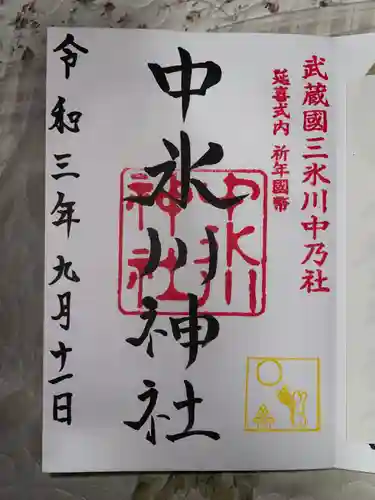 武蔵國三氷川中乃社
延喜式内 祈年國幣
中氷川神社
中氷川神社
令和三年九月十一日